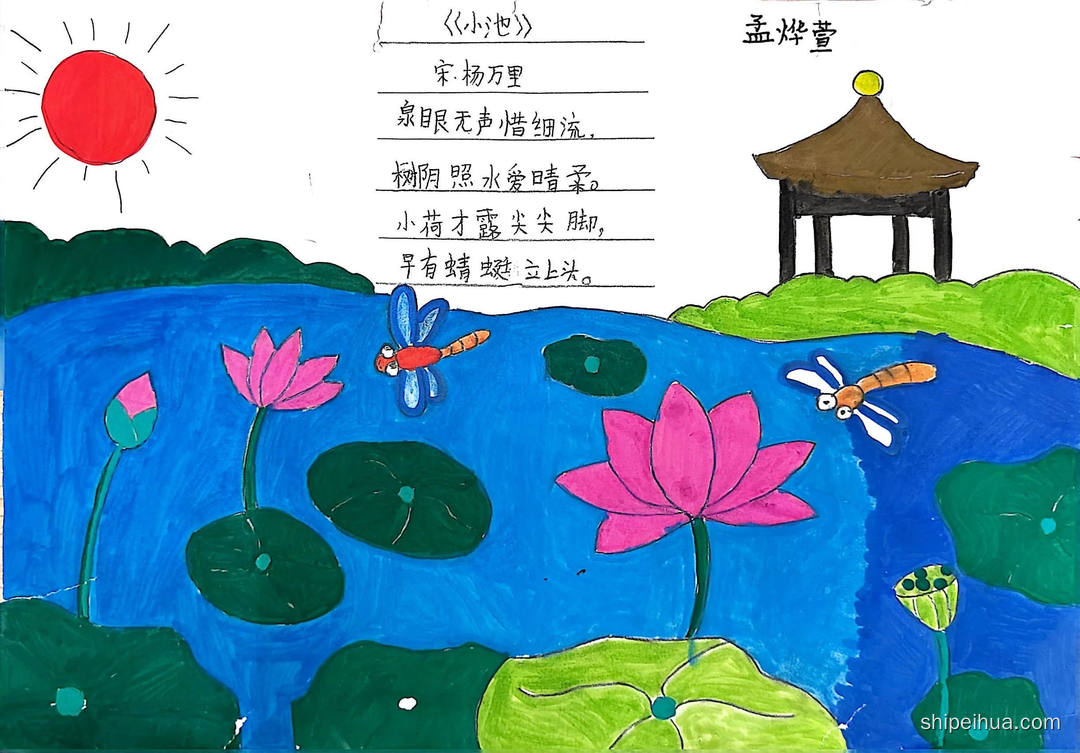 《小池》
孟烨萱
宋·杨万里
泉眼无声惜细流,
树阴照水爱晴柔。
小荷才露尖尖脚,
早有蜻蜓立上头。
shipeihua.com